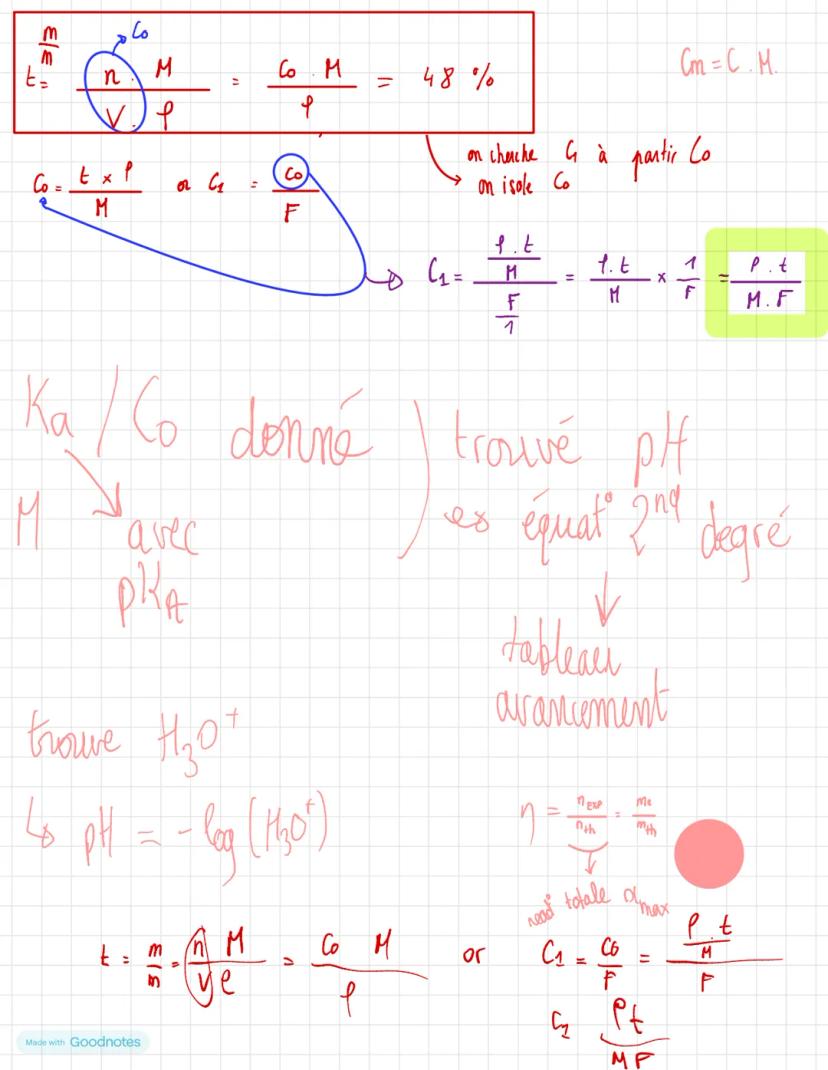 t = m/m = n . M / V . ρ = C0 . M / ρ = 48 %
C0
Cm = C . M.
on cherche C1 à partir C0
on isole C0
C0 = t × ρ / M or C1 = C0 / F
C1 = ρ . t / M / F / 1 = ρ . t / M × 1 / F = ρ . t / M . F
Ka / C0 donné ) trouvé pH
M avec pKA
équat° 2nd degré
tableau
avancement
trouve H3O+
↳ pH = - log (H3O+)
η = nexp / nth = me / mth
totale xmax
t = m / m = n M / V ρ = C0 M / ρ or C1 = C0 / F = ρ . t / M / F
ρt / MF
Made with Goodnotes